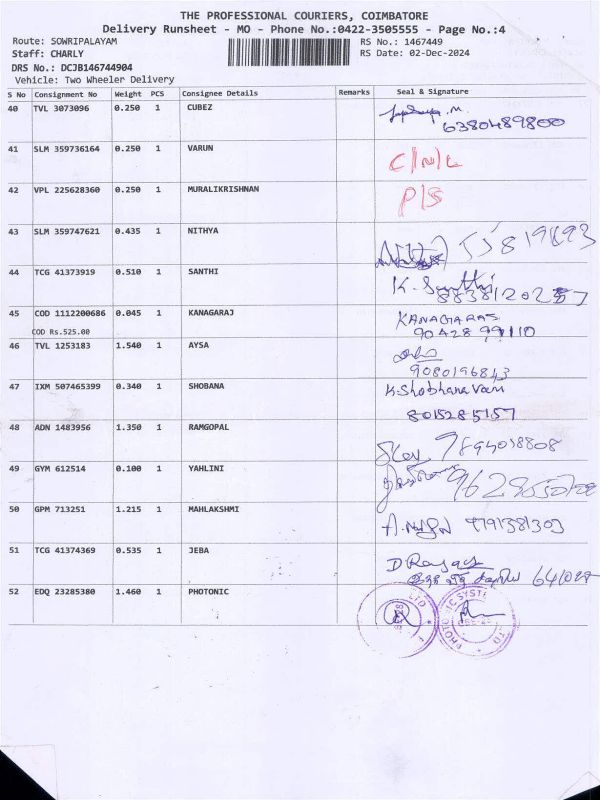 THE PROFESSIONAL COURIERS, COIMBATORE
Delivery Runsheet - MO - Phone No.:0422-3505555 - Page No.:4
Route: SOWRIPALAYAM RS No.: 1467449
Staff: CHARLY RS Date: 02-Dec-2024
DRS No.: DCJB146744904
Vehicle: Two Wheeler Delivery
S No Consignment No Weight PCS Consignee Details Remarks Seal & Signature
40 TVL 3073096 0.250 1 CUBEZ
6380489800
41 SLM 359736164 0.250 1 VARUN C/N/L
42 VPL 225628360 0.250 1 MURALIKRISHNAN P/S
43 SLM 359747621 0.435 1 NITHYA
44 TCG 41373919 0.510 1 SANTHI K. Santhi
45 COD 1112200686 0.045 1 KANAGARAJ KANAGARAJ
COD Rs.525.00 90428 99110
46 TVL 1253183 1.540 1 AYSA
9080196843
47 IXM 507465399 0.340 1 SHOBANA K.Shobhanavani
8015285157
48 ADN 1483956 1.350 1 RAMGOPAL
49 GYM 612514 0.100 1 YAHLINI
50 GPM 713251 1.215 1 MAHLAKSHMI
51 TCG 41374369 0.535 1 JEBA
52 EDQ 23285380 1.460 1 PHOTONIC